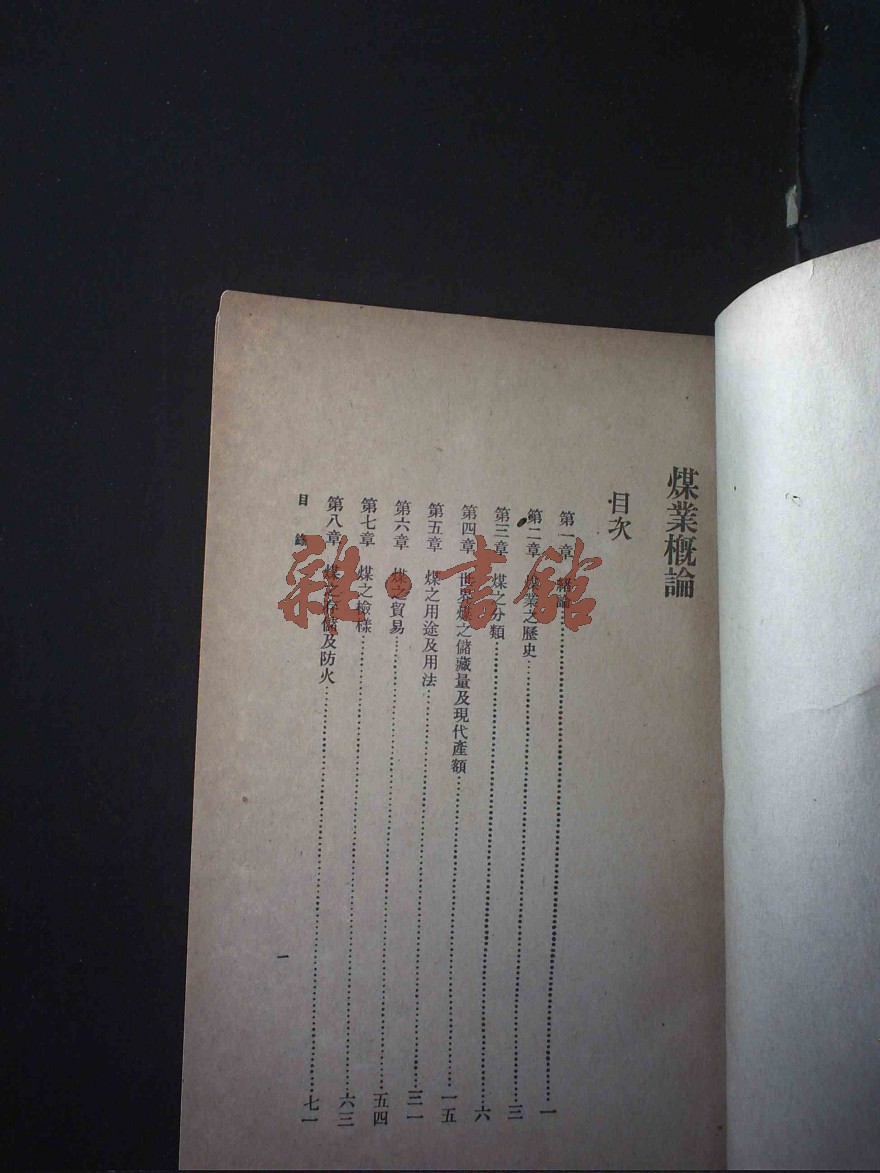 煤業概論
目次
第一章 緒論……一
第二章 煤業之歷史……三
第三章 煤之分類……六
第四章 世界煤之儲藏量及現代產額……一五
第五章 煤之用途及用法……三一
第六章 煤之貿易……五四
第七章 煤之檢樣……六三
第八章 煤之存儲及防火……七一
目錄
一
雜·書館